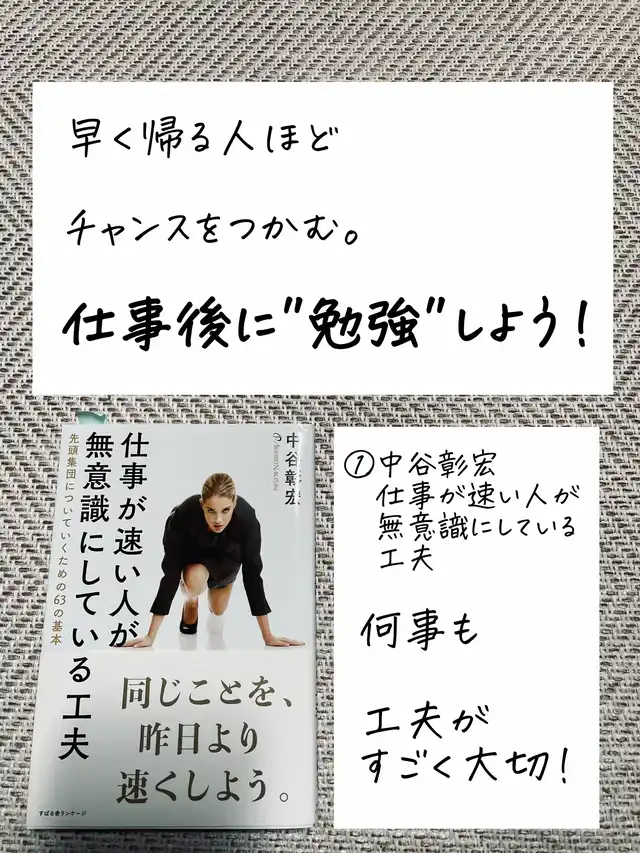 早く帰る人ほど
チャンスをつかむ。
仕事後に"勉強"しよう!
中谷彰宏
仕事が速い人が
無意識にしている工夫
先頭集団についていくための63の基本
同じことを、
昨日より
速くしよう。
すばる舎リンケージ
①中谷彰宏
仕事が速い人が
無意識にしている
工夫
何事も
工夫が
すごく大切!